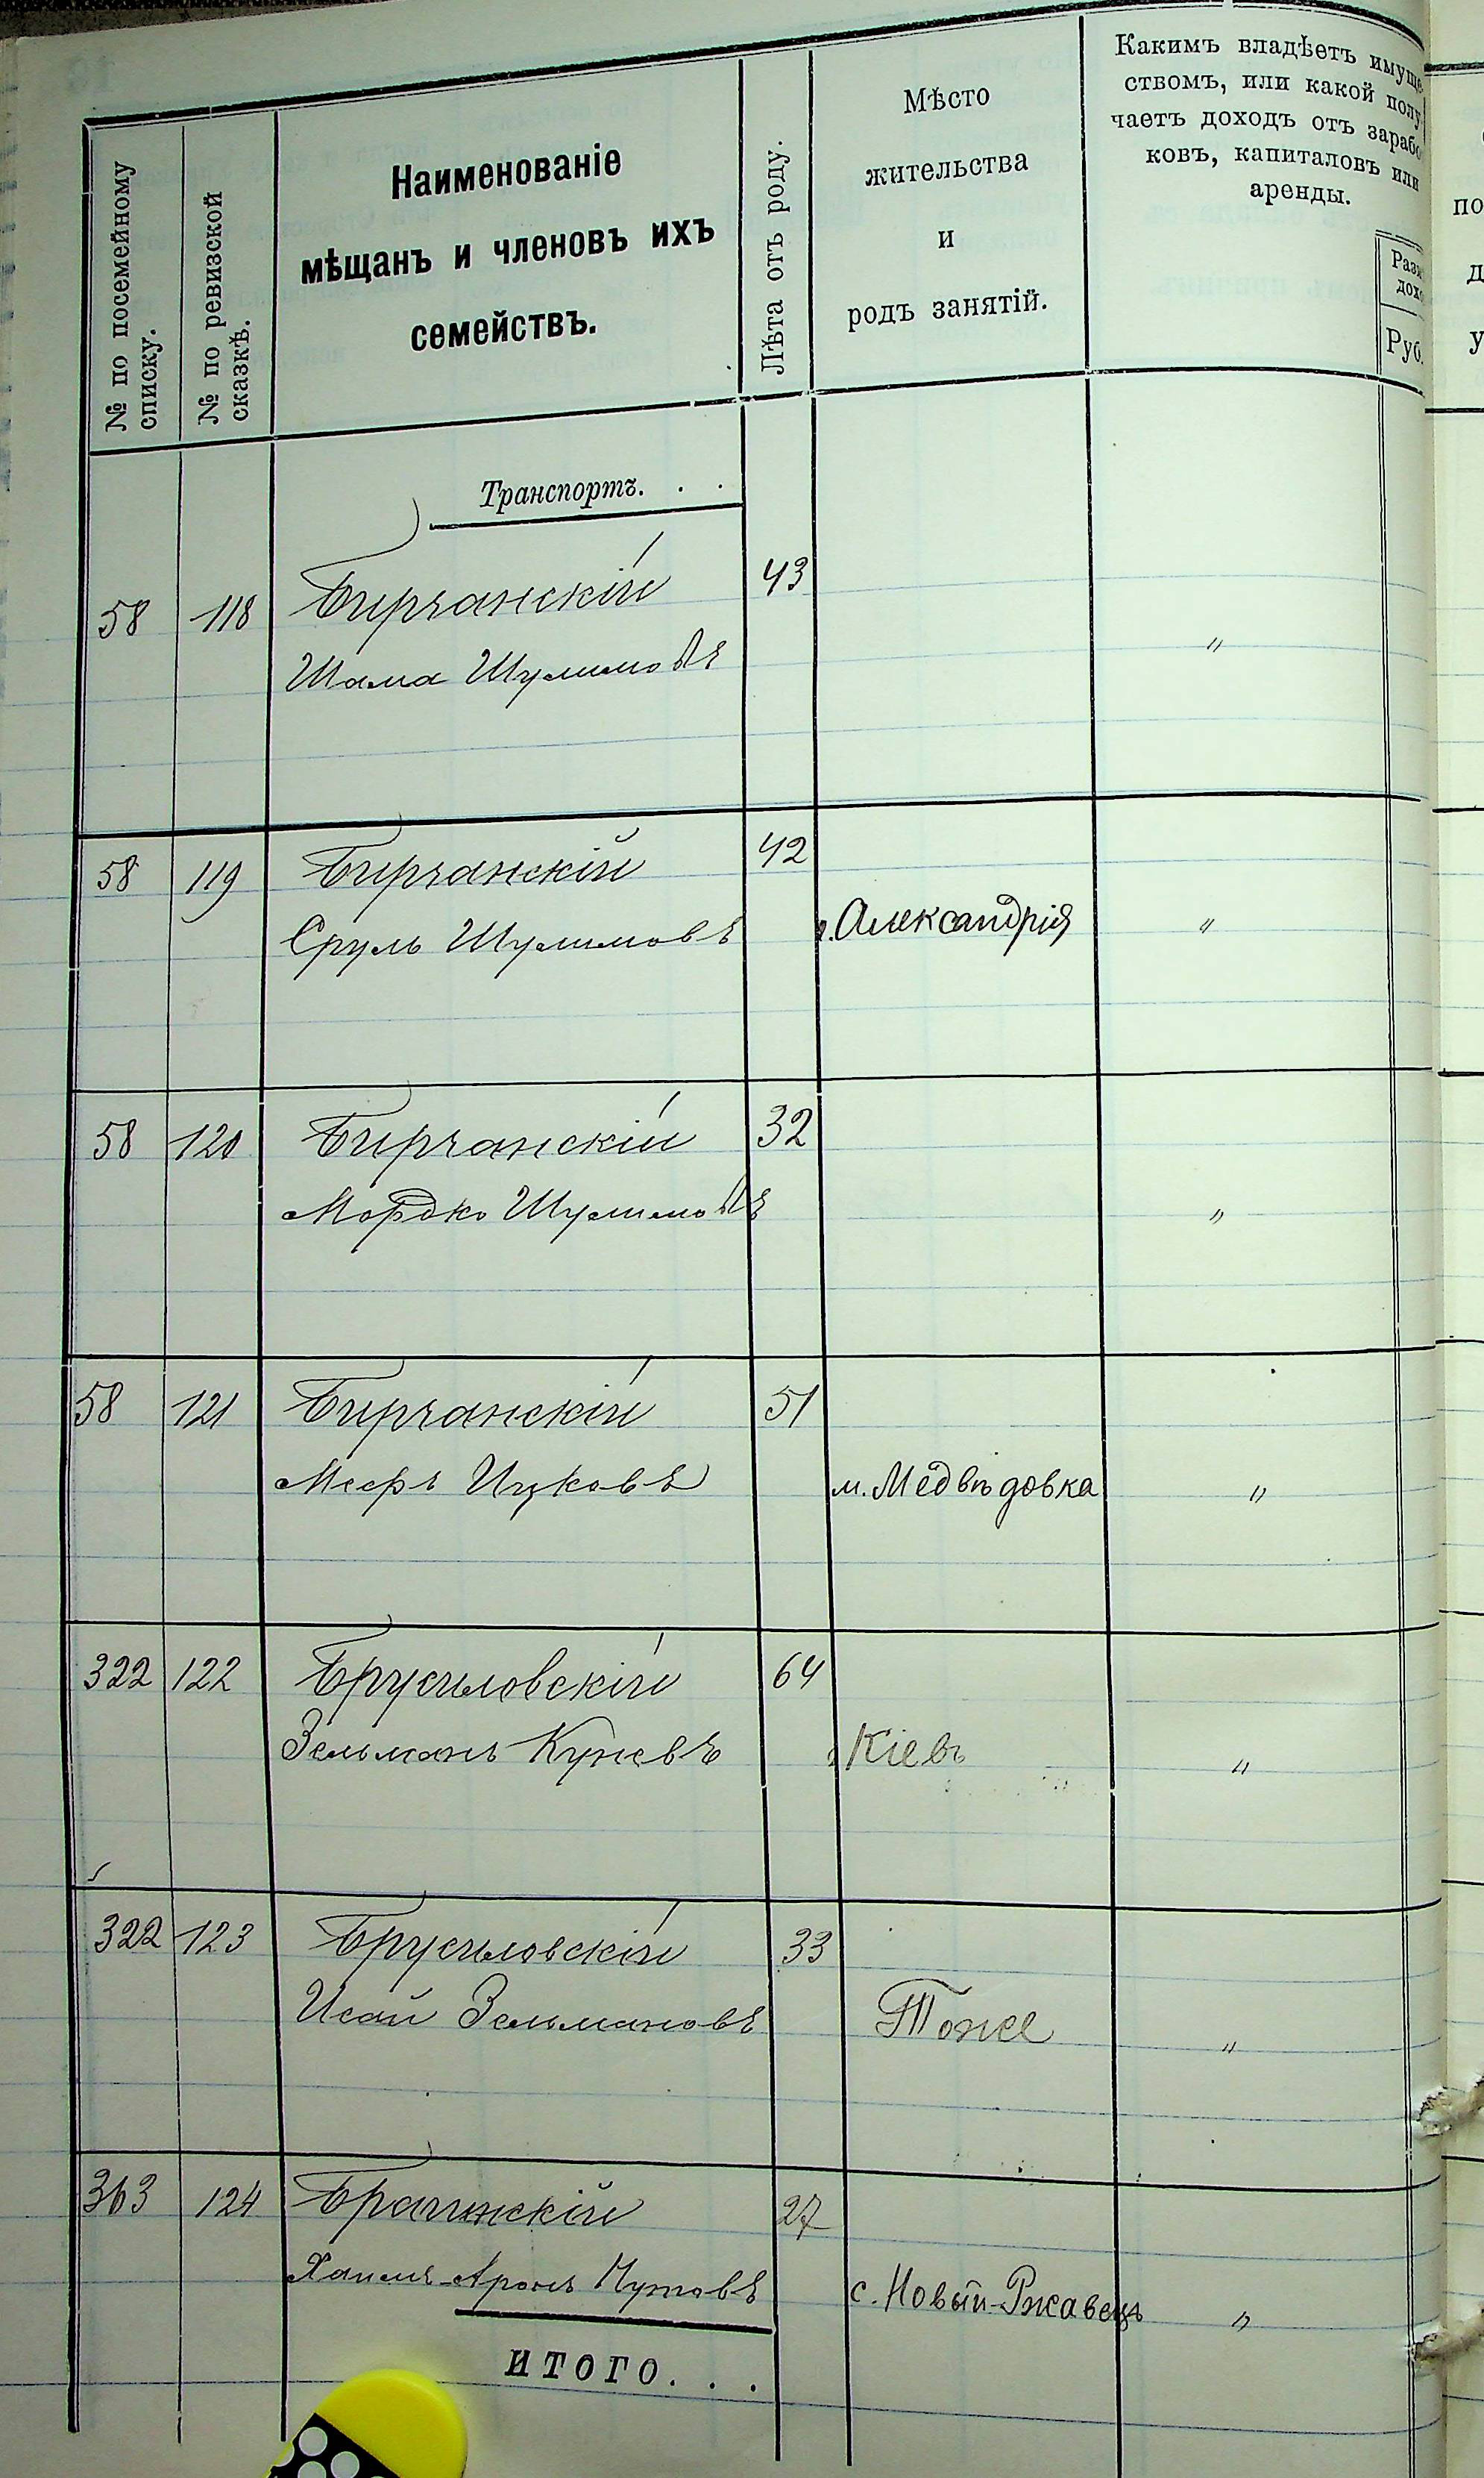 № по посемейному
списку.
№ по ревизской
сказкѣ.
Наименованіе
мѣщанъ и членовъ ихъ
семействъ.
Лѣта отъ роду.
Мѣсто
жительства
и
родъ занятій.
Какимъ владѣетъ имуще
ствомъ, или какой полу
чаетъ доходъ отъ зарабо
ковъ, капиталовъ или
аренды.
Разм
дохо
Руб.
Транспортъ. . .
58 118 Бирчанскій 43
Шама Шулимовъ "
58 119 Бирчанскій 42
Сруль Шулимовъ г. Александрія "
58 120 Бирчанскій 32
Мордко Шулимовъ "
58 121 Бирчанскій 51
Мееръ Ицковъ м. Медвѣдовка "
322 122 Брусиловскій 64
Зельманъ Куневъ г. Кіевъ "
322 123 Брусиловскій 33
Исай Зельмановъ Тоже "
363 124 Брагинскій 27
Хаимъ-Аронъ Нутовъ с. Новый-Ржавецъ "
ИТОГО. . .